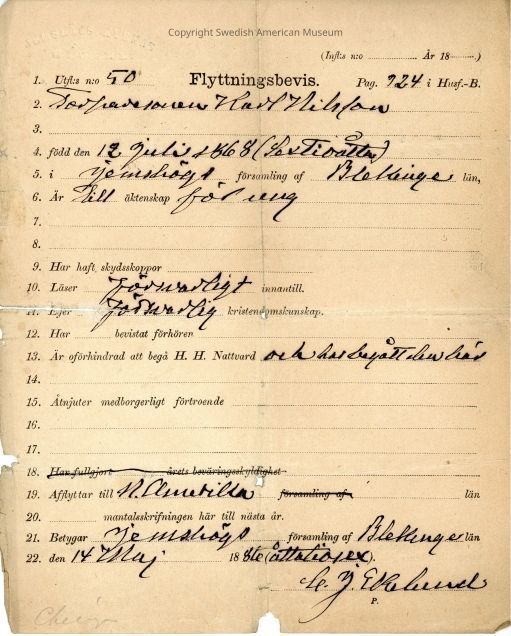 Copyright Swedish American Museum
(Infl: n:o År 18 )
1. Utfl: n:o 50 Flyttningsbevis. Pag. 924 i Husf.-B.
2. Torparesonen Karl Nilsson
3.
4. född den 12 Juli 1868 (Sextioåtta)
5. i Jemshögs församling af Blekinge län,
6. Är till äktenskap för ung
7.
8.
9. Har haft skydsskoppor
10. Läser försvarligt innantill.
11. Ejer försvarlig kristendomskunskap.
12. Har bevistat förhören
13. Är oförhindrad att begå H. H. Nattvard och har begått den här
14.
15. Åtnjuter medborgerligt förtroende
16.
17.
18. Har fullgjort årets beväringsskyldighet
19. Afflyttar till N. Amerika församling af län
20. mantalsskrifningen här till nästa år.
21. Betygar Jemshögs församling af Blekinge län
22. den 14 Maj 1886 (åttatiosex).
Ekelund
P.